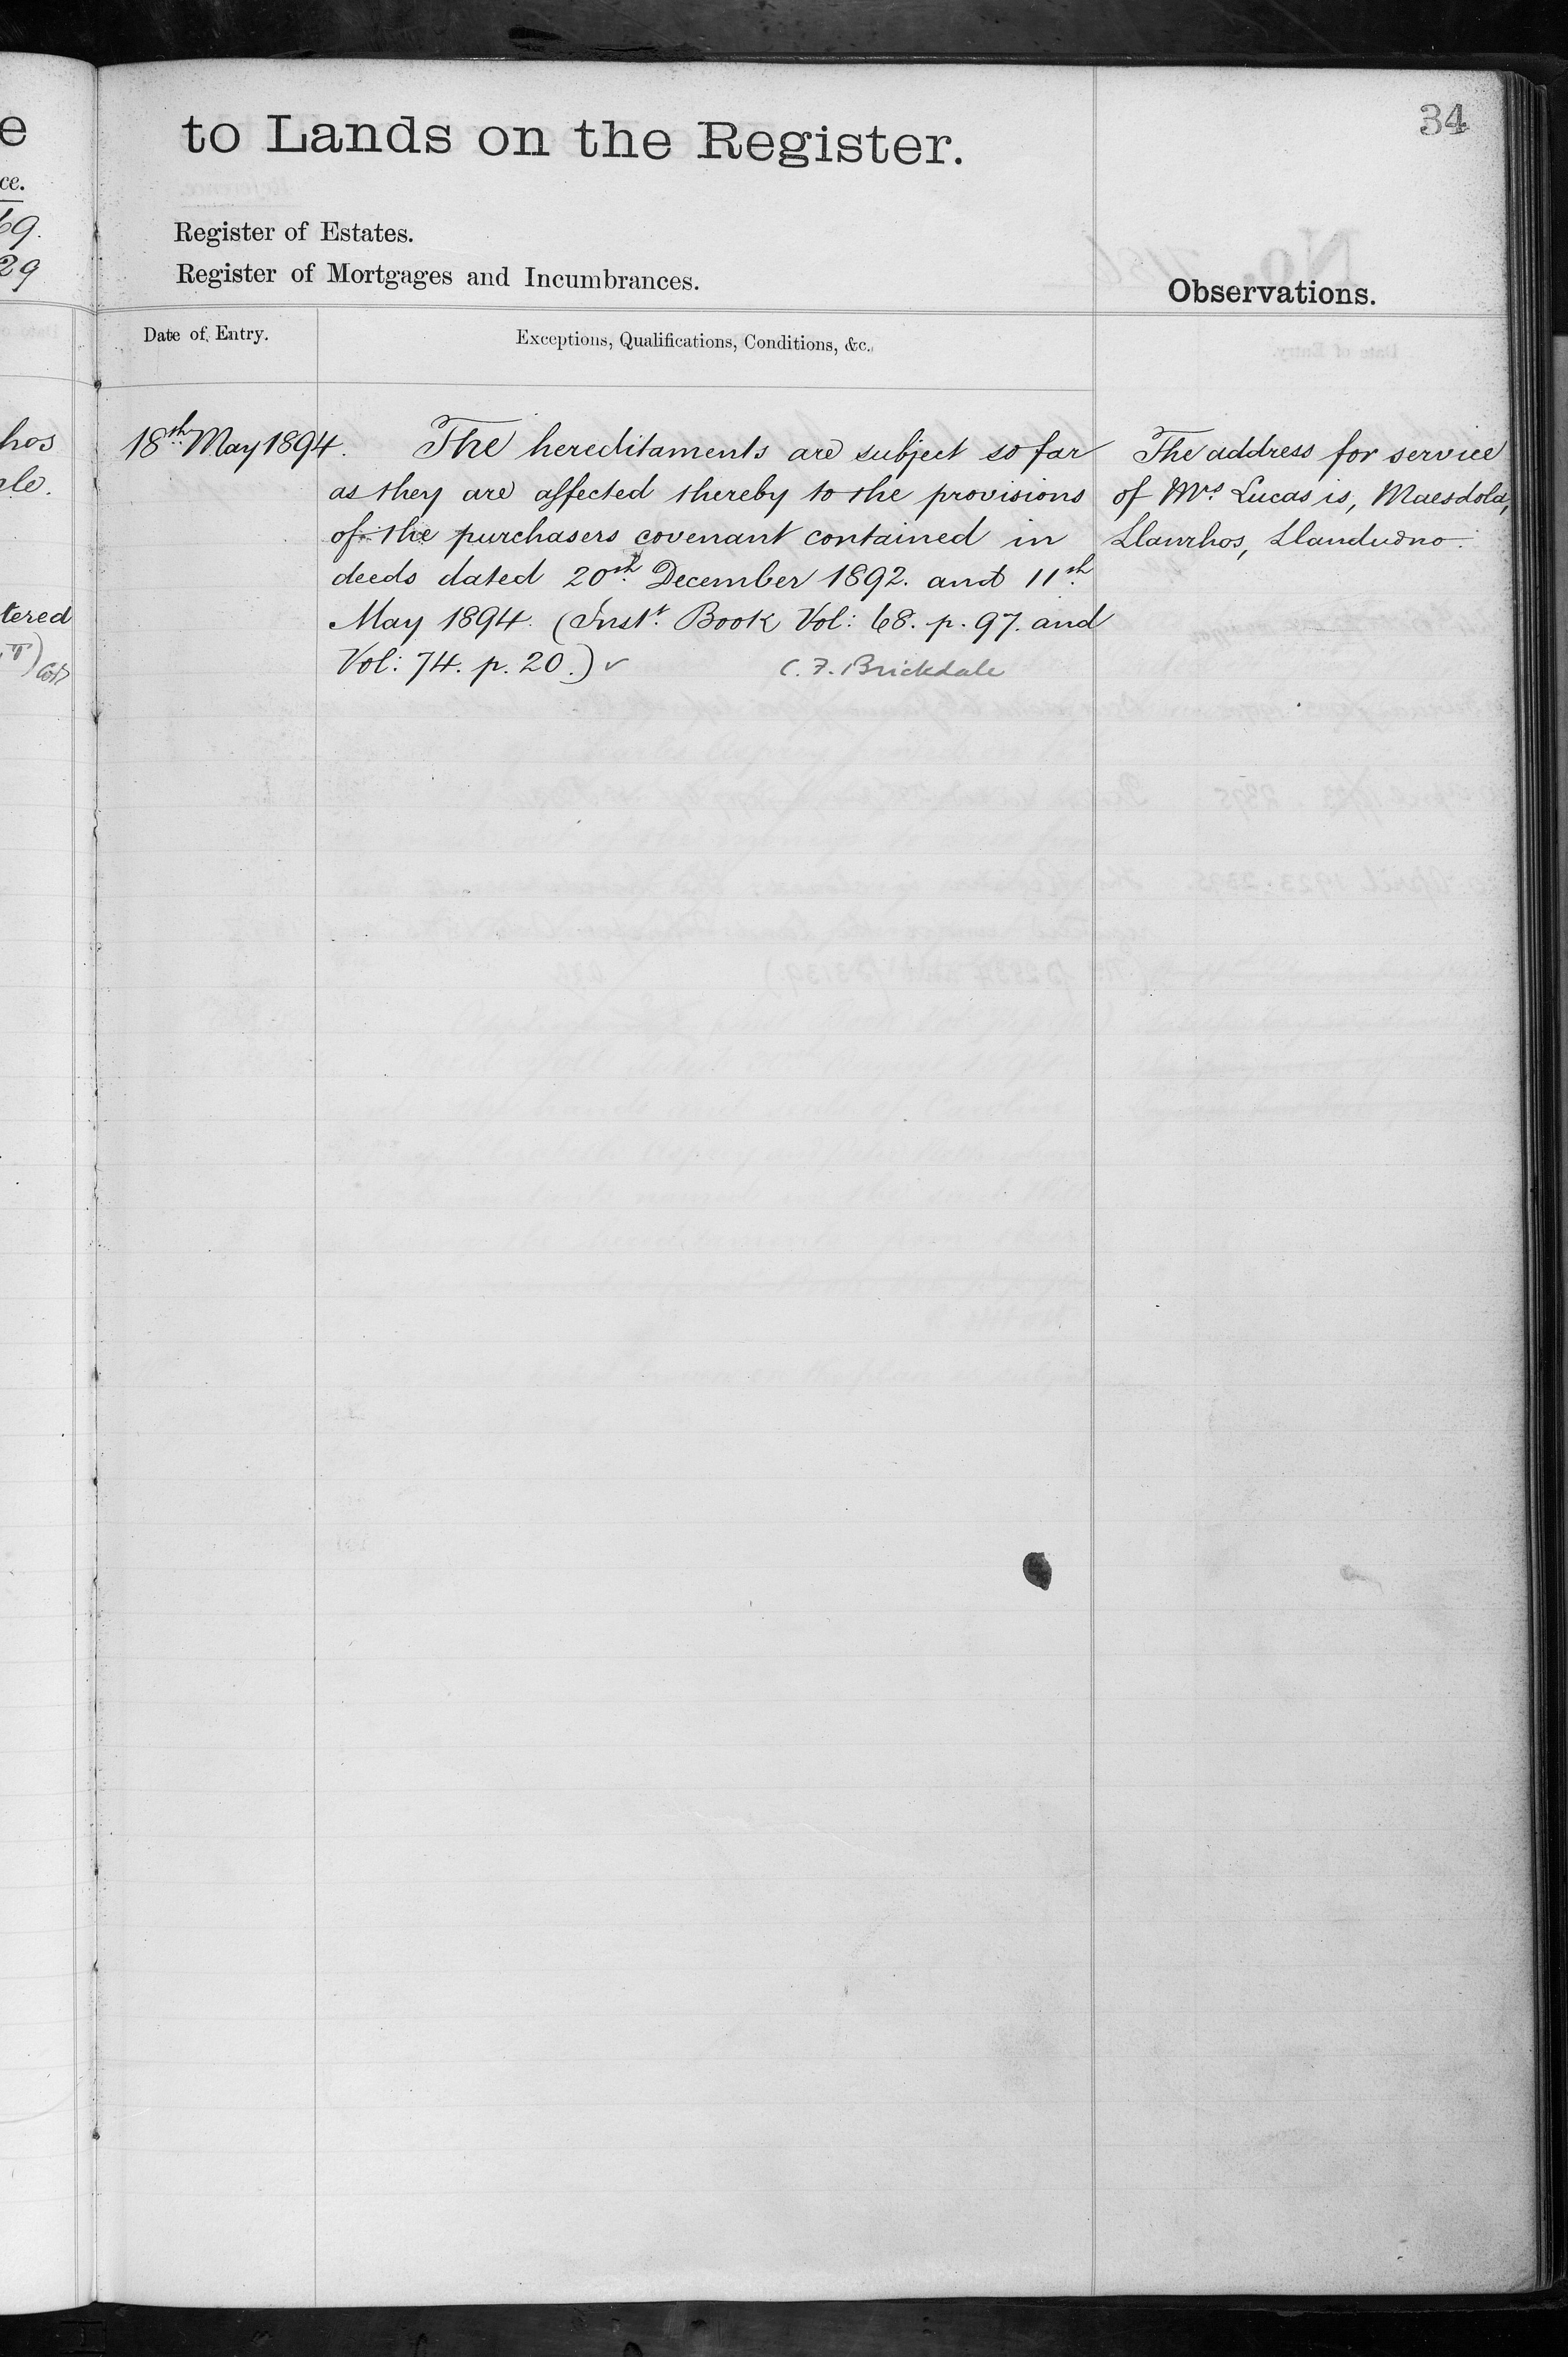 34
to Lands on the Register.
Register of Estates.
Register of Mortgages and Incumbrances.
Observations.
Date of Entry.
Exceptions, Qualifications, Conditions, &c.
18th May 1894.
The hereditaments are subject so far
as they are affected thereby to the provisions
of the purchasers covenant contained in
deeds dated 20th December 1892. and 11th
May 1894. (Inst. Book Vol: 68. p. 97. and
Vol: 74. p. 20.) ✓
C. F. Brickdale
The address for service
of Mrs. Lucas is, Maesdola,
Llanrhos, Llandudno.
e
ce.
69.
29
hos
ale.
tered